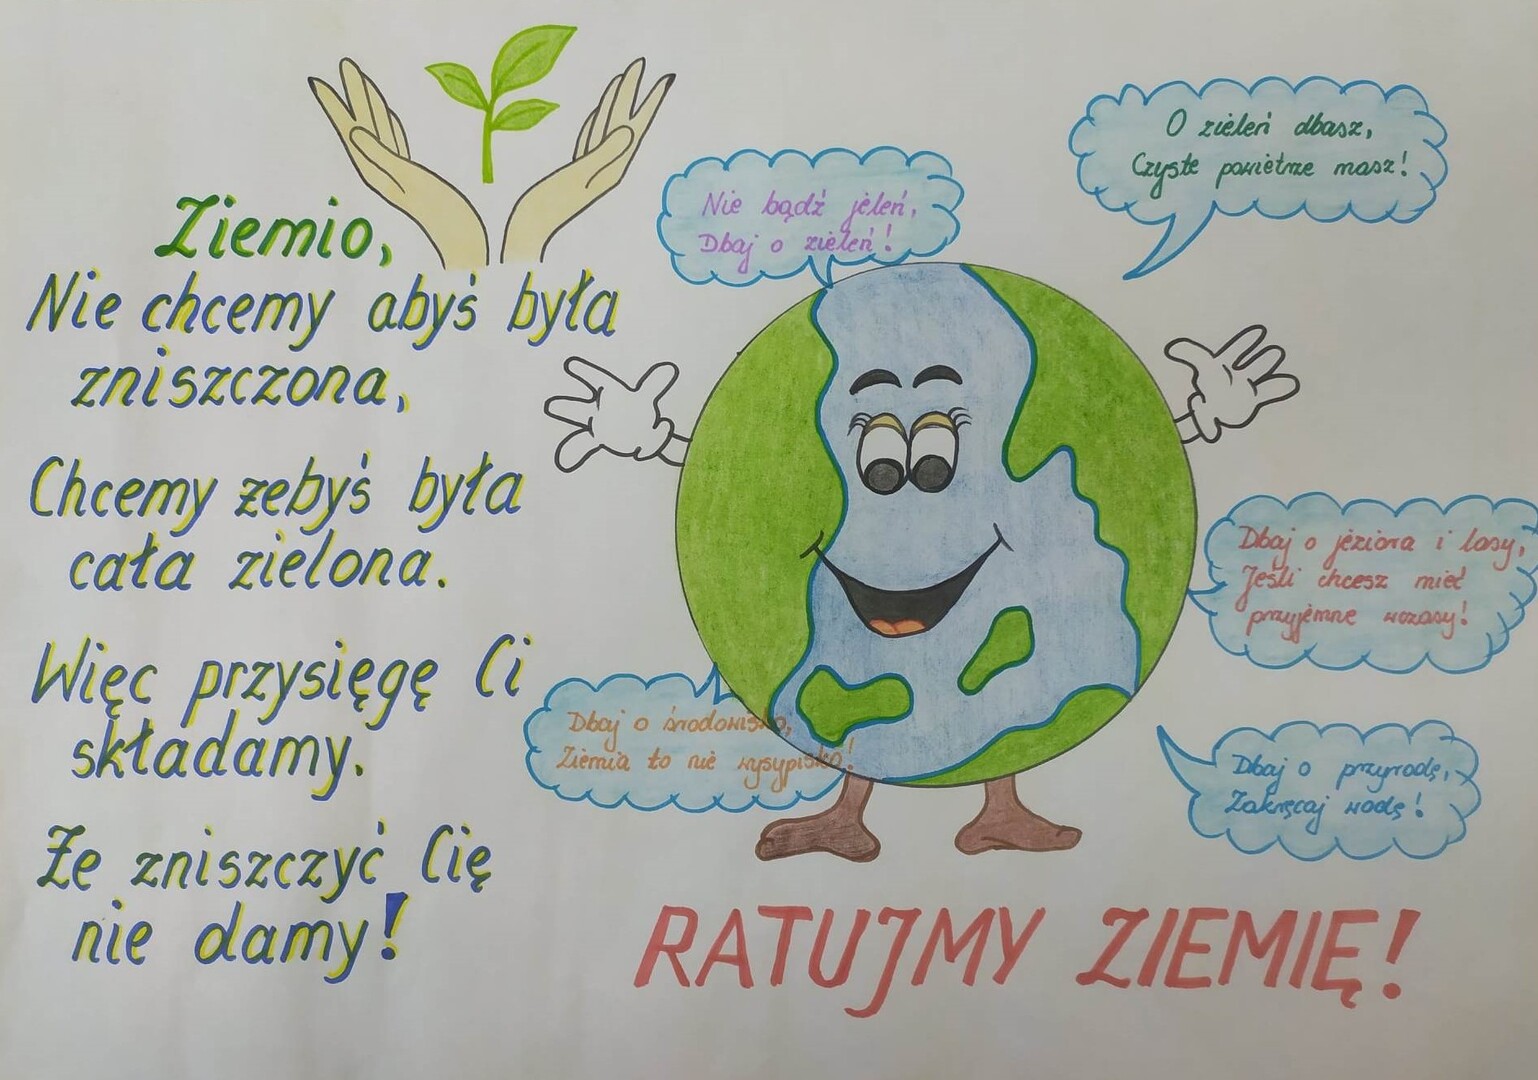 Ziemio,
Nie chcemy abyś była
zniszczona,
Chcemy żebyś była
cała zielona.
Więc przysięgę Ci
składamy.
Że zniszczyć Cię
nie damy!
Nie bądź jeleń,
Dbaj o zieleń!
O zieleń dbasz,
Czyste powietrze masz!
Dbaj o jeziora i lasy,
Jeśli chcesz mieć
przyjemne wczasy!
Dbaj o środowisko,
Ziemia to nie wysypisko!
Dbaj o przyrodę,
Zakręcaj wodę!
RATUJMY ZIEMIĘ!